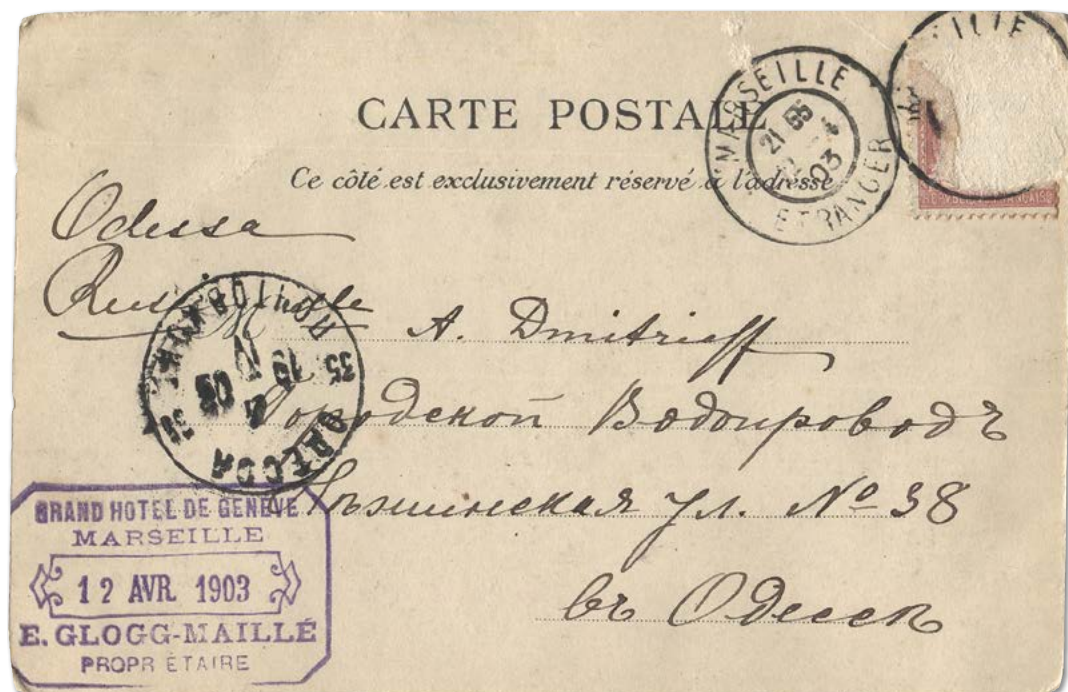 CARTE POSTALE
Ce côté est exclusivement réservé à l'adresse
MARSEILLE
21
03
ETRANGER
Odessa
A. Dmitrieff
Городской Водопроводъ
ул. № 38
въ Одессѣ
ОДЕССА
GRAND HOTEL DE GENÈVE
MARSEILLE
12 AVR. 1903
E. GLOGG-MAILLÉ
PROPR ÉTAIRE